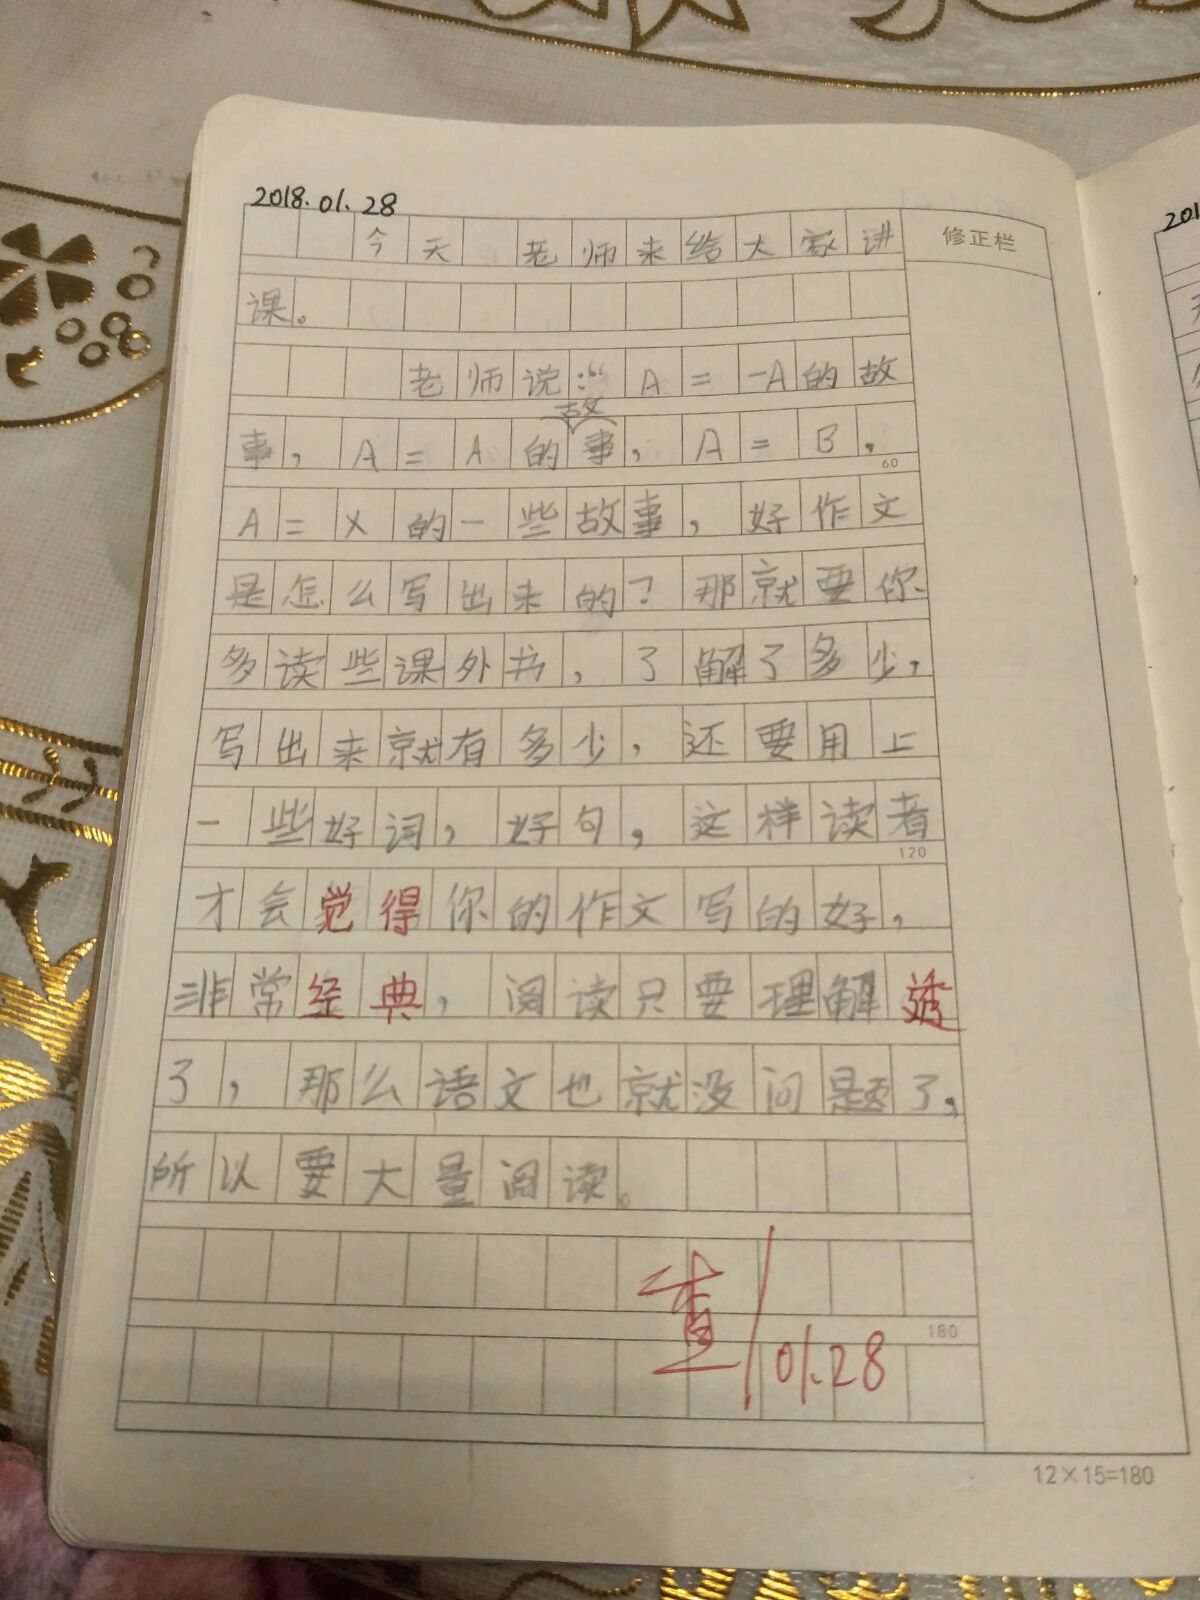 2018.01.28
今天 老师来给大家讲
修正栏
课。
老师说:“A=-A的故
事,A=A的故事,A=B,
60
A=X的一些故事,好作文
是怎么写出来的?那就要你
多读些课外书,了解了多少,
写出来就有多少,还要用上
一些好词,好句,这样读者
120
才会觉得你的作文写的好,
非常经典,阅读只要理解透
了,那么语文也就没问题了,
所以要大量阅读。
查/01.28
180
12×15=180
201